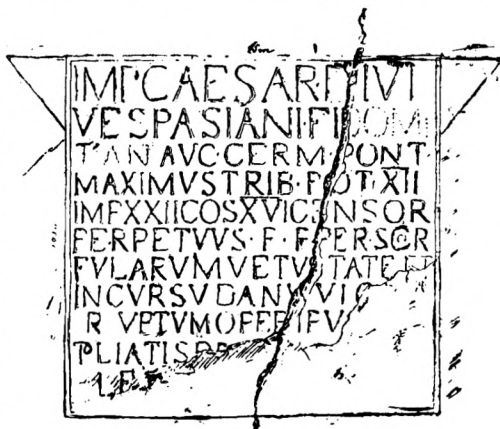 IMP·CAESAR·DIVI
VESPASIANI·F·DOM
T AN AVC CERM PONT·
MAXIMVS TRIB·POT XII
IMP XXII COS XVI CENSOR
PERPETVVS·P·P PER SCR
FVLARVM VETVSTATE ET
INCVRSV DANVVI
RVPTVM
PLIATIS